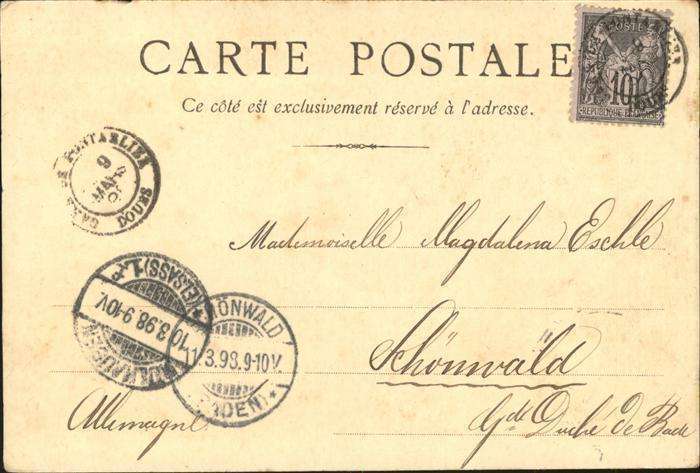 CARTE POSTALE
Ce côté est exclusivement réservé à l'adresse.
POSTE
10
REPUBLIQUE FRANÇAISE
GARE DE PONTARLIER
9
MARS
DOUBS
Mademoiselle Magdalena Eschle
(ELSASS) 1
10.3.98.9-10V.
SCHÖNWALD
11.3.98.9-10V.
(BADEN)
Schönwäld
Allemagne
Gd Duché de Bade